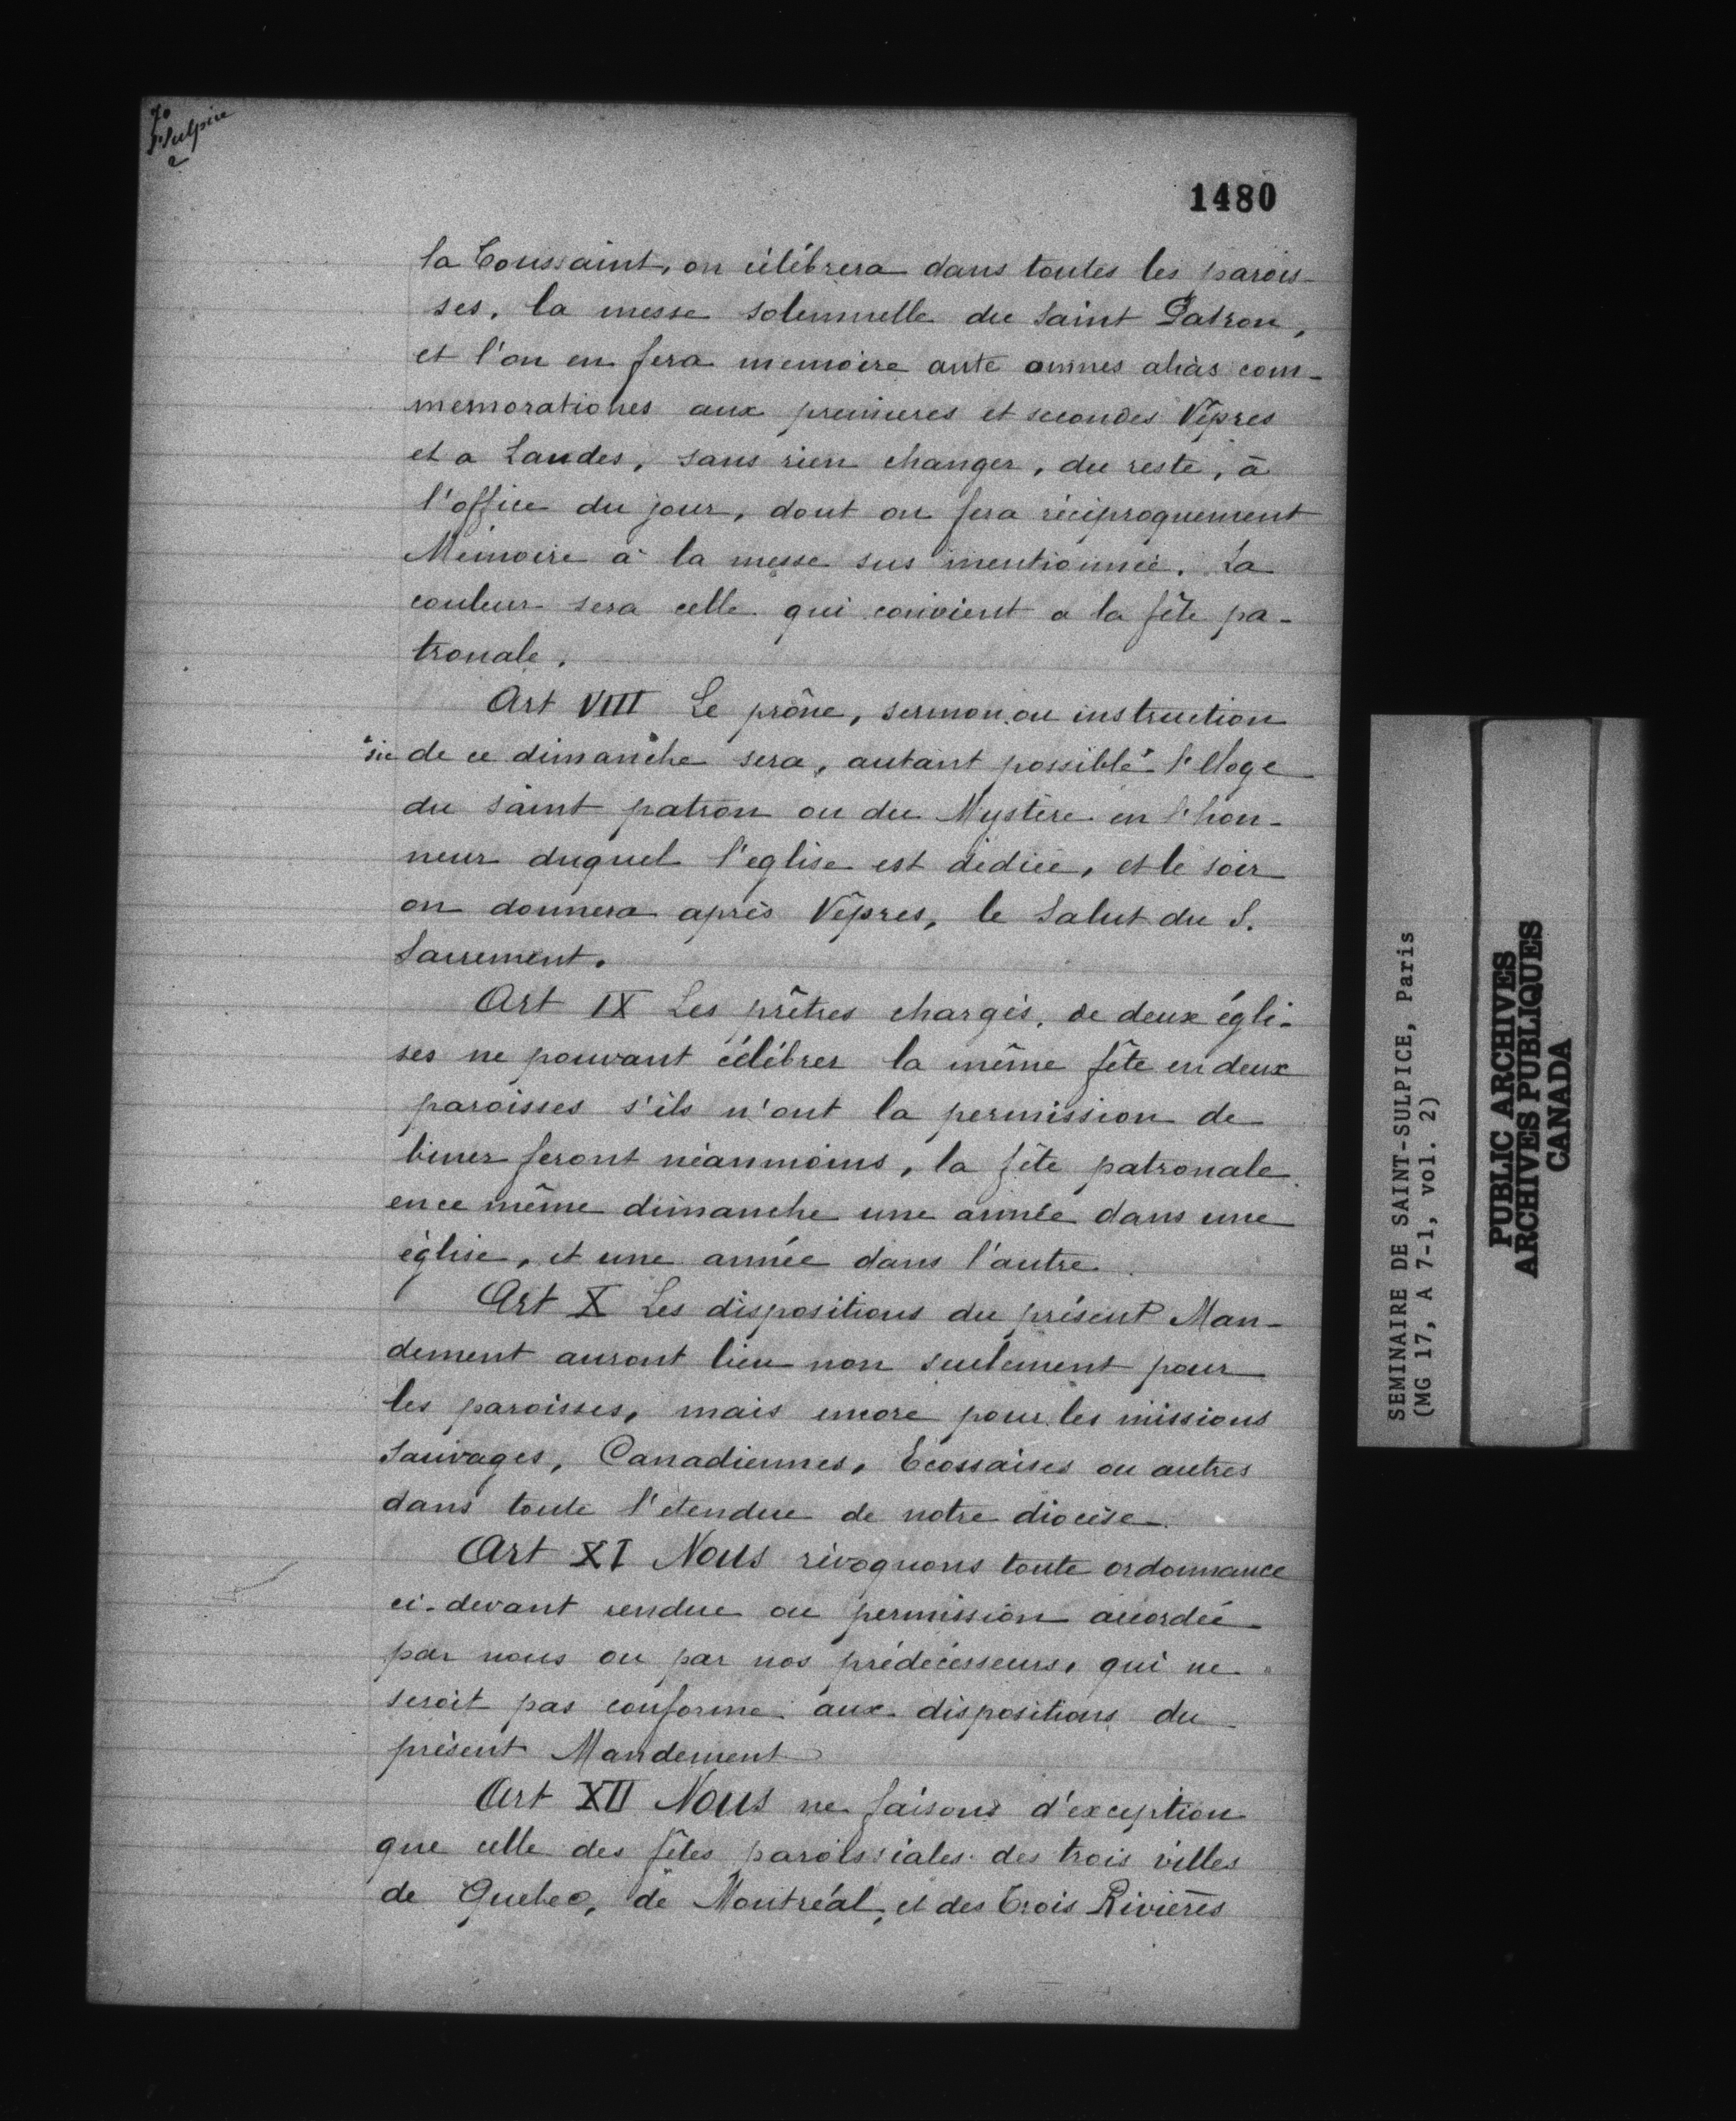 S. Sulpice
2
1480
la Toussaint, on célébrera dans toutes les parois-
ses, la messe solennelle du Saint Patron,
et l'on en fera memoire ante omnes alias com-
memorationes aux premieres et secondes Vêpres
et a Laudes, sans rien changer, du reste, à
l'office du jour, dont on fera réciproquement
Mémoire à la messe sus mentionnée. La
couleur sera celle qui convient a la fête pa-
tronale.
Art VIII Le prône, sermon ou instruction
sic de ce dimanche sera, autant possible l'Eloge
du saint patron ou du Mystère en l'hon-
neur duquel l'eglise est dédiée, et le soir
on donnera après Vêpres, le Salut du S.
Sacrement.
Art IX Les prêtres chargés, de deux égli-
ses ne pouvant célébrer la même fête en deux
paroisses s'ils n'ont la permission de
biner feront néanmoins, la fête patronale
en ce même dimanche une année dans une
église, et une année dans l'autre.
Art X Les dispositions du présent Man-
dement auront lieu non seulement pour
les paroisses, mais encore pour les missions
Sauvages, Canadiennes, Ecossaises ou autres
dans toute l'étendue de notre diocèse.
Art XI Nous révoquons toute ordonnance
ci-devant rendue ou permission accordée
par nous ou par nos prédécesseurs, qui ne
seroit pas conforme aux dispositions du
présent Mandement
Art XII Nous ne faisons d'exception
que celle des fêtes paroissiales des trois villes
de Quebec, de Montréal, et des Trois Rivières
SEMINAIRE DE SAINT-SULPICE, Paris
(MG 17, A 7-1, vol. 2)
PUBLIC ARCHIVES
ARCHIVES PUBLIQUES
CANADA